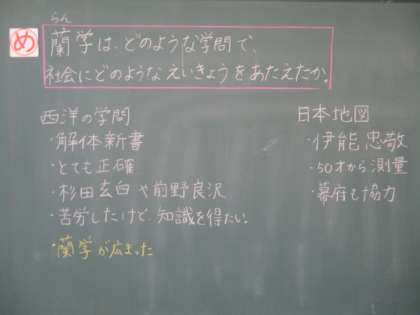 め
らん
蘭学は、どのような学問で、
社会にどのようなえいきょうをあたえたか。
西洋の学問
・解体新書
・とても正確
・杉田玄白や前野良沢
・苦労したけど、知識を得たい。
・蘭学が広まった
日本地図
・伊能忠敬
・50才から測量
・幕府も協力